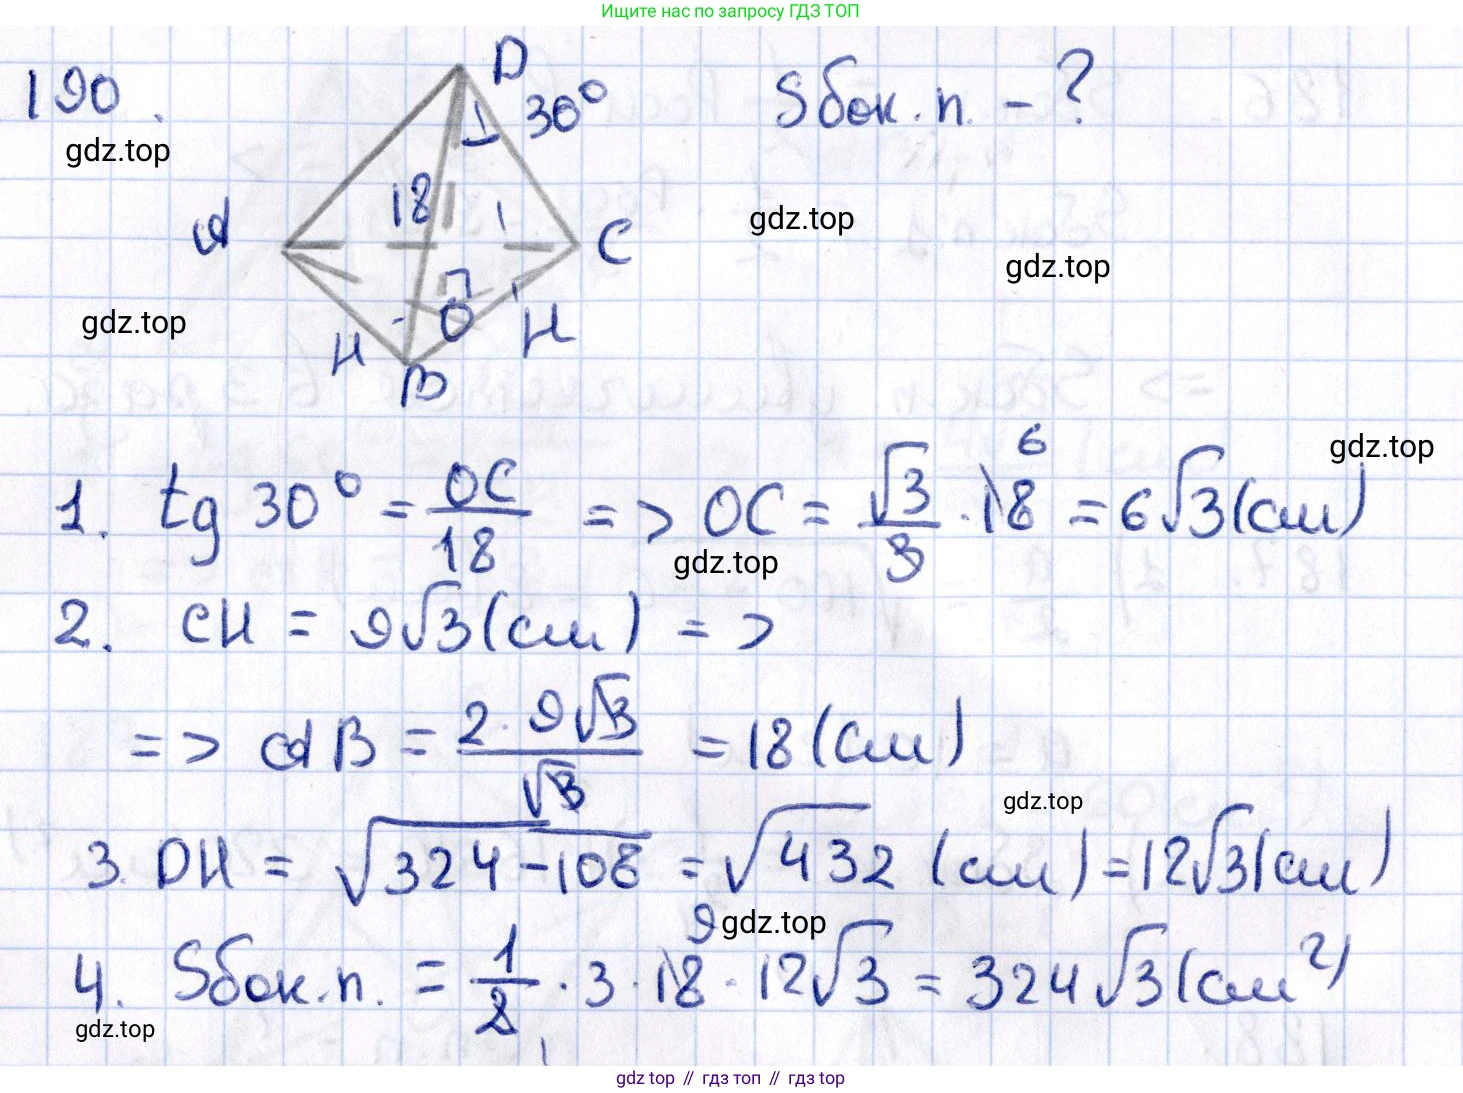 Ищите нас по запросу ГДЗ ТОП
190.
D
30°
Sбок.п. - ?
gdz.top
18
gdz.top
A
C
gdz.top
gdz.top
O
H
H
B
gdz.top
1. tg 30° = OC/18 => OC = √3/3 · 18 6 = 6√3 (см)
gdz.top
2. CH = 9√3 (см) =>
=> AB = 2·9√3/√3 = 18 (см)
gdz.top
3. DH = √324-108 = √432 (см) = 12√3 (см)
gdz.top
4. Sбок.п. = 1/2 · 3 · 18 9 · 12√3 = 324√3 (см²)
gdz.top
gdz top // гдз топ // гдз top